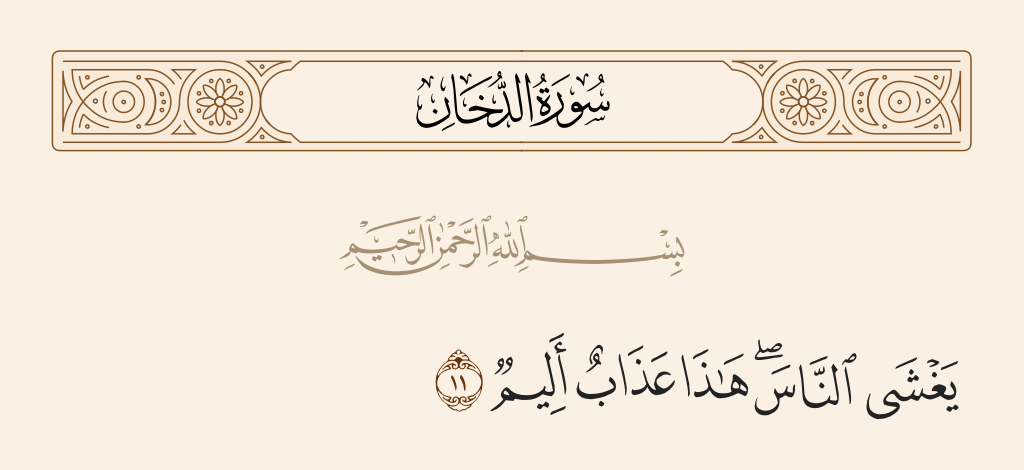 سُورَةُ الدُّخَانِ
بِسْمِ ٱللَّهِ ٱلرَّحْمَٰنِ ٱلرَّحِيمِ
يَغْشَى ٱلنَّاسَۖ هَٰذَا عَذَابٌ أَلِيمٌ ١١